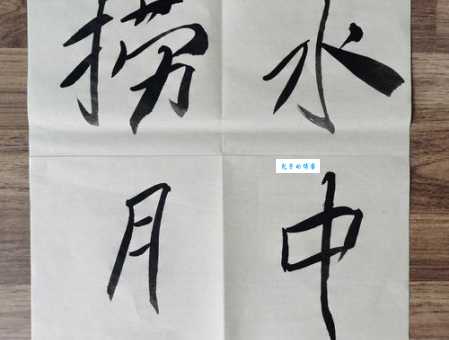 水中
捞月